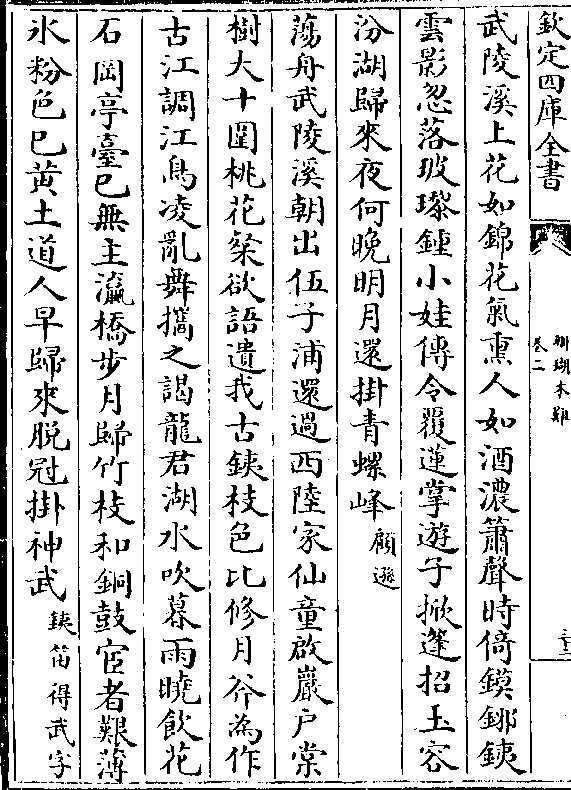 欽定四庫全書
珊瑚木難
卷二
武陵溪上花如錦花氣熏人如酒濃簫聲時倚鏌鋣鐵
雲影忽落玻瓈鍾小娃傳令覆蓮掌遊子掀篷招玉容
汾湖歸來夜何晚明月還掛青螺峰顧遜
蕩舟武陵溪朝出伍子浦還過西陸家仙童啟巖户棠
樹大十圍桃花粲欲語遺我古鐵枝色比修月斧為作
古江調江鳥凌亂舞攜之謁龍君湖水吹暮雨曉飲花
石岡亭臺已無主瀛橋步月歸竹枝和銅鼓宦者艱薄
氷粉色已黃土道人早歸來脱冠掛神武鐵笛得武字